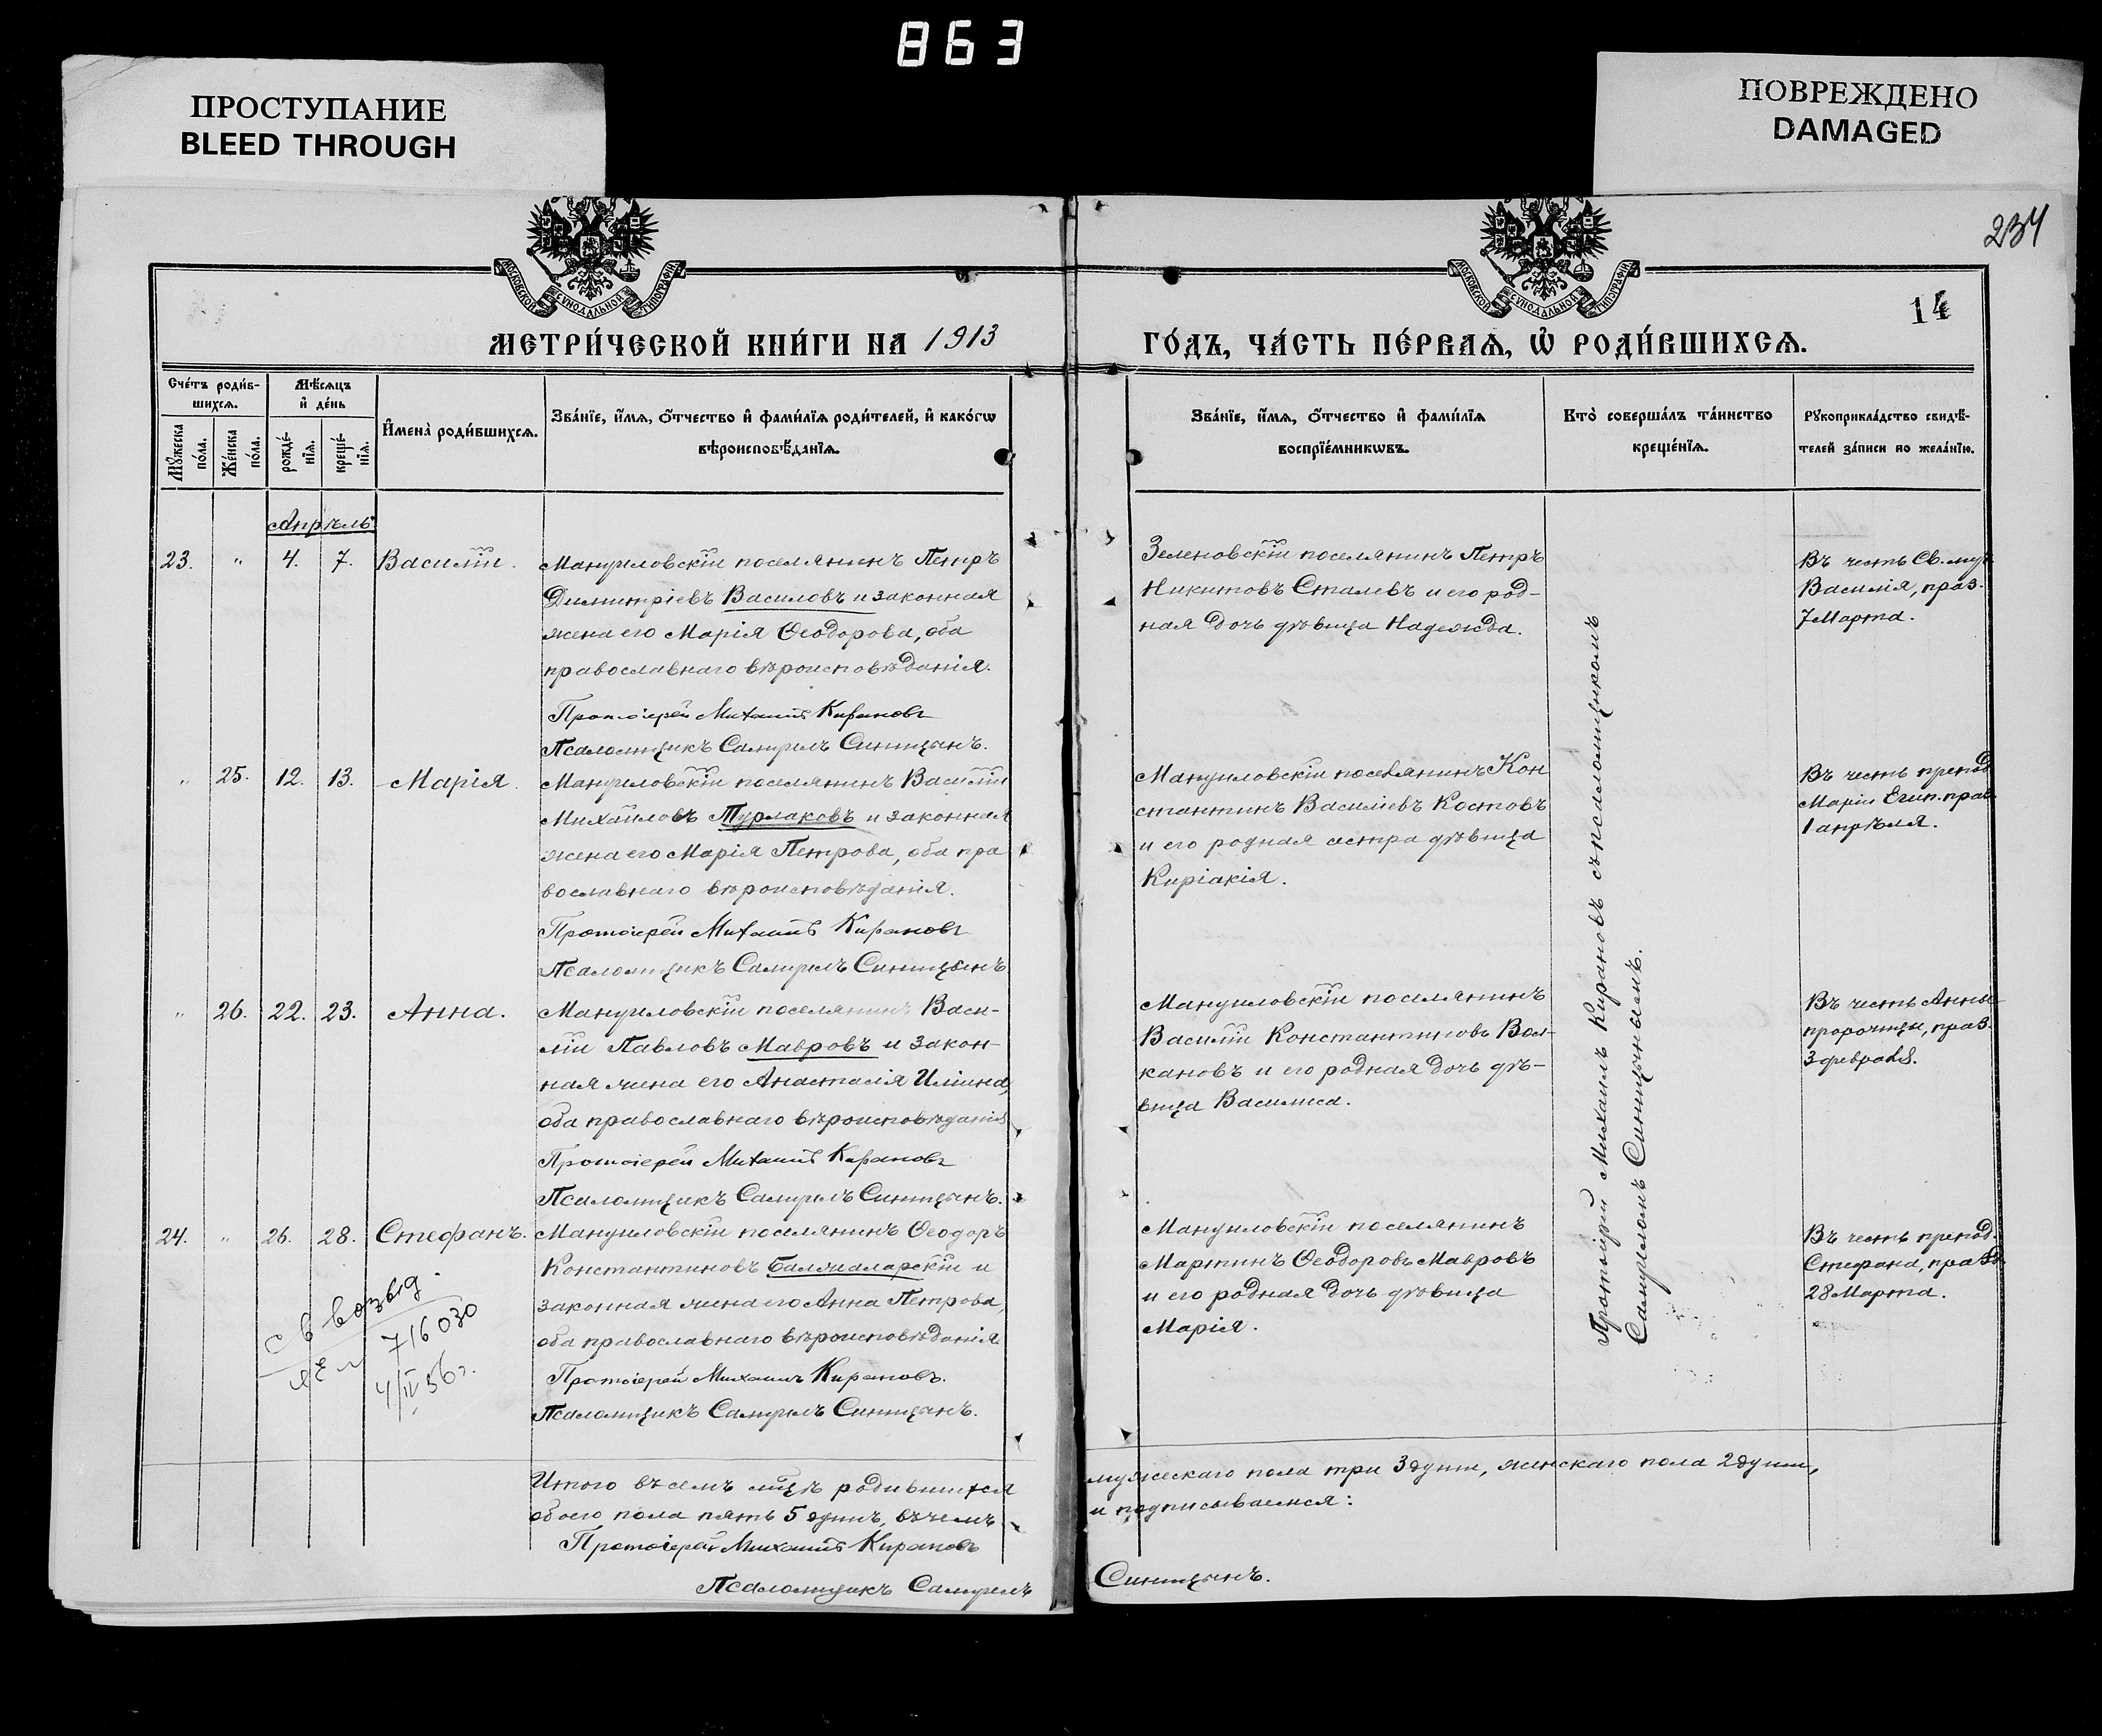 863
ПРОСТУПАНИЕ
BLEED THROUGH
ПОВРЕЖДЕНО
DAMAGED
234
14
МОСКОВСКОЙ СѴНОДАЛЬНОЙ ТИПОГРАФІИ
МОСКОВСКОЙ СѴНОДАЛЬНОЙ ТИПОГРАФІИ
МЕТРИ́ЧЕСКОЙ КНИ́ГИ НА 1913
ГО́ДЪ, ЧА́СТЬ ПЕ́РВАѦ, Ѡ҆ РОДИ́ВШИХСѦ.
Сче́тъ роди́в-
шихсѧ.
Мꙋ́жеска по́ла.
Же́нска по́ла.
Мѣ́сѧцъ
и҆ де́нь
рожде́-
нїѧ.
креще́-
нїѧ.
И҆мена̀ роди́вшихсѧ.
Зва́нїе, и҆́мѧ, ѻ҆́тчество и҆ фами́лїѧ роди́телей, и҆ како́гѡ
вѣроисповѣ́данїѧ.
Зва́нїе, и҆́мѧ, ѻ҆́тчество и҆ фами́лїѧ
воспрїе́мникѡвъ.
Кто̀ соверша́лъ та́инство
креще́нїѧ.
Рꙋкоприкла́дство свидѣ́-
телей за́писи по жела́нїю.
Апрѣль
23. " 4. 7. Василій.
Мануиловскій поселянинъ Петръ
Димитріевъ Василовъ и законная
жена его Марія Ѳеодорова, оба
православнаго вѣроисповѣданія.
Протоіерей Михаилъ Кирановъ
Псаломщикъ Самуилъ Синицынъ.
Зеленовскій поселянинъ Петръ
Никитовъ Сталевъ и его род-
ная дочь дѣвица Надежда.
Въ честь Св. муч.
Василія, праз.
7 Марта.
" 25. 12. 13. Марія.
Мануиловскій поселянинъ Василій
Михайловъ Турлаковъ и законная
жена его Марія Петрова, оба пра
вославнаго вѣроисповѣданія.
Протоіерей Михаилъ Кирановъ
Псаломщикъ Самуилъ Синицынъ
Мануиловскій поселянинъ Кон
стантинъ Василіевъ Костовъ
и его родная сестра дѣвица
Киріакія.
Въ честь препод
Маріи Егип. праз
1 апрѣля.
" 26. 22. 23. Анна.
Мануиловскій поселянинъ Васи-
лій Павловъ Мавровъ и закон-
ная жена его Анастасія Иліина,
оба православнаго вѣроисповѣданія
Протоіерей Михаилъ Кирановъ
Псаломщикъ Самуилъ Синицынъ.
Мануиловскій поселянинъ
Василій Константиновъ Вол-
кановъ и его родная дочь дѣ-
вица Василиса.
Въ честь Анны
пророчицы, праз.
3 февраля.
24. " 26. 28. Стефанъ.
Мануиловскій поселянинъ Ѳеодоръ
Константиновъ Балжаларскій и
законная жена его Анна Петрова,
оба православнаго вѣроисповѣданія
Протоіерей Михаилъ Кирановъ.
Псаломщикъ Самуилъ Синицынъ.
Мануиловскій поселянинъ
Мартинъ Ѳеодоровъ Мавровъ
и его родная дочь дѣвица
Марія.
Въ честь препод.
Стефана, празд
28 Марта.
Протоіерей Михаилъ Кирановъ съ псаломщикомъ
Самуиломъ Синицынымъ.
с в выд.
716030
4/IV 56 г.
Итого въ семъ мѣсяцѣ родившихся
обоего пола пять 5 душъ, въ чемъ
мужескаго пола три 3 души, женскаго пола 2 души,
и подписываемся:
Протоіерей Михаилъ Кирановъ
Псаломщикъ Самуилъ Синицынъ.